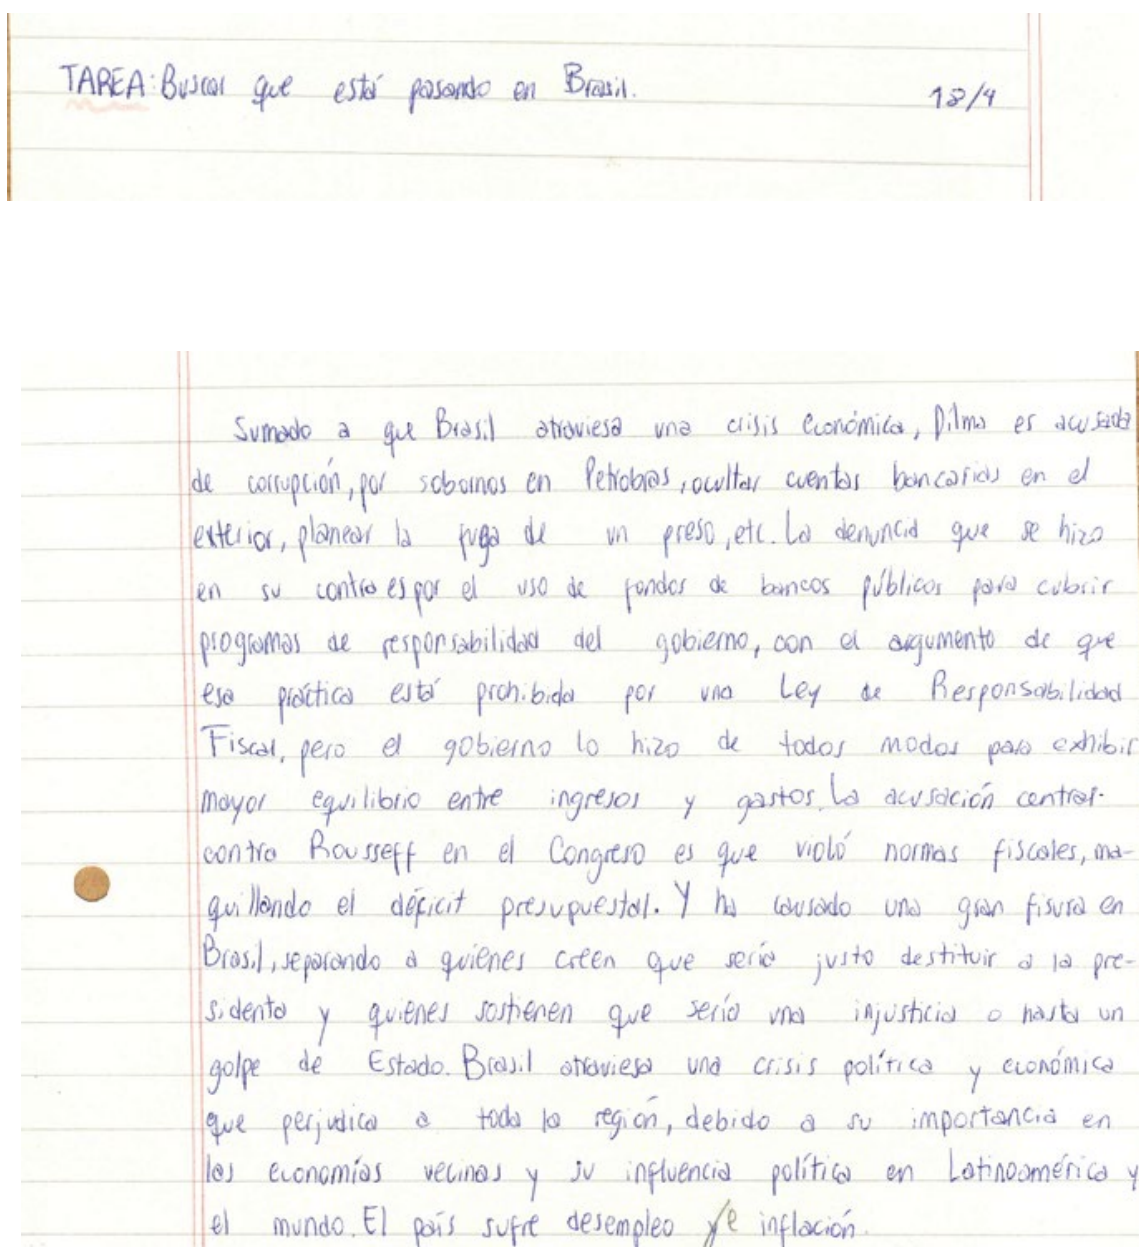 TAREA: Buscar que está pasando en Brasil.
18/4
Sumado a que Brasil atraviesa una crisis económica, Dilma es acusada
de corrupción, por sobornos en Petrobras, ocultar cuentas bancarias en el
exterior, planear la fuga de un preso, etc. La denuncia que se hizo
en su contra es por el uso de fondos de bancos públicos para cubrir
programas de responsabilidad del gobierno, con el argumento de que
esa práctica está prohibida por una Ley de Responsabilidad
Fiscal, pero el gobierno lo hizo de todos modos para exhibir
mayor equilibrio entre ingresos y gastos. La acusación central
contra Rousseff en el Congreso es que violó normas fiscales, ma-
quillando el déficit presupuestal. Y ha causado una gran fisura en
Brasil, separando a quiénes creen que sería justo destituir a la pre-
sidenta y quiénes sostienen que sería una injusticia o hasta un
golpe de Estado. Brasil atraviesa una crisis política y económica
que perjudica a toda la región, debido a su importancia en
las economías vecinas y su influencia política en Latinoamérica y
el mundo. El país sufre desempleo e inflación.